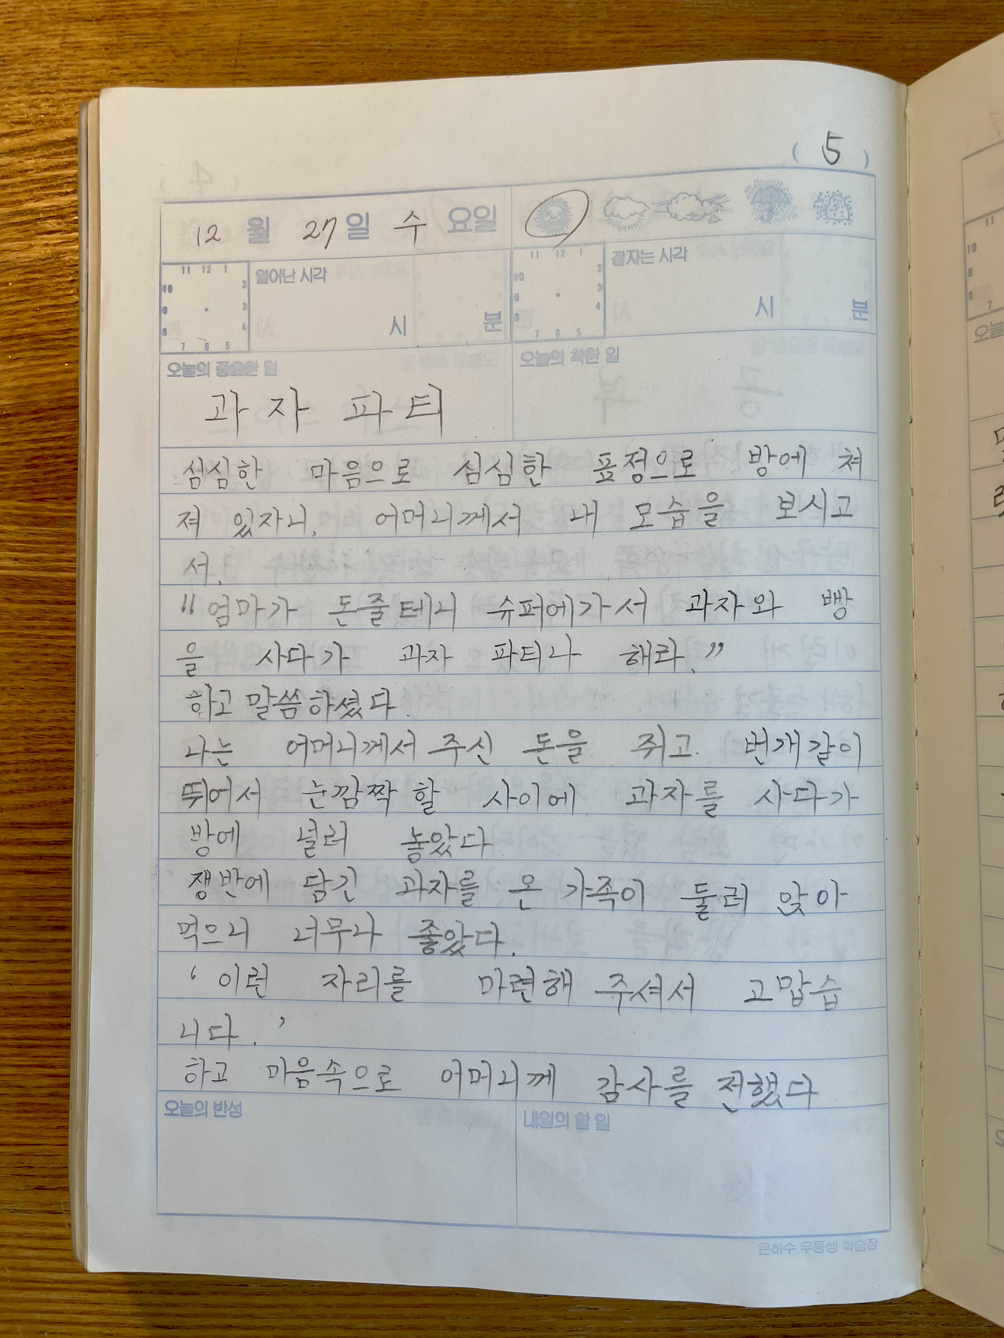 ( 5 )
12 월 27 일 수 요일
11 12 1
10 2
9 3
8 4
7 6 5
일어난 시각
시 분
11 12 1
10 2
9 3
8 4
7 6 5
잠자는 시각
시 분
오늘의 중요한 일
오늘의 착한 일
과자 파티
심심한 마음으로 심심한 표정으로 방에 쳐
져 있자니, 어머니께서 내 모습을 보시고
서,
"엄마가 돈줄테니 슈퍼에가서 과자와 빵
을 사다가 과자 파티나 해라."
하고 말씀하셨다.
나는 어머니께서 주신 돈을 쥐고 번개같이
뛰어서 눈깜짝 할 사이에 과자를 사다가
방에 널려 놓았다
쟁반에 담긴 과자를 온 가족이 둘러 앉아
먹으니 너무나 좋았다.
'이런 자리를 마련해 주셔서 고맙습
니다.'
하고 마음속으로 어머니께 감사를 전했다
오늘의 반성
내일의 할 일
은하수 우등생 학습장